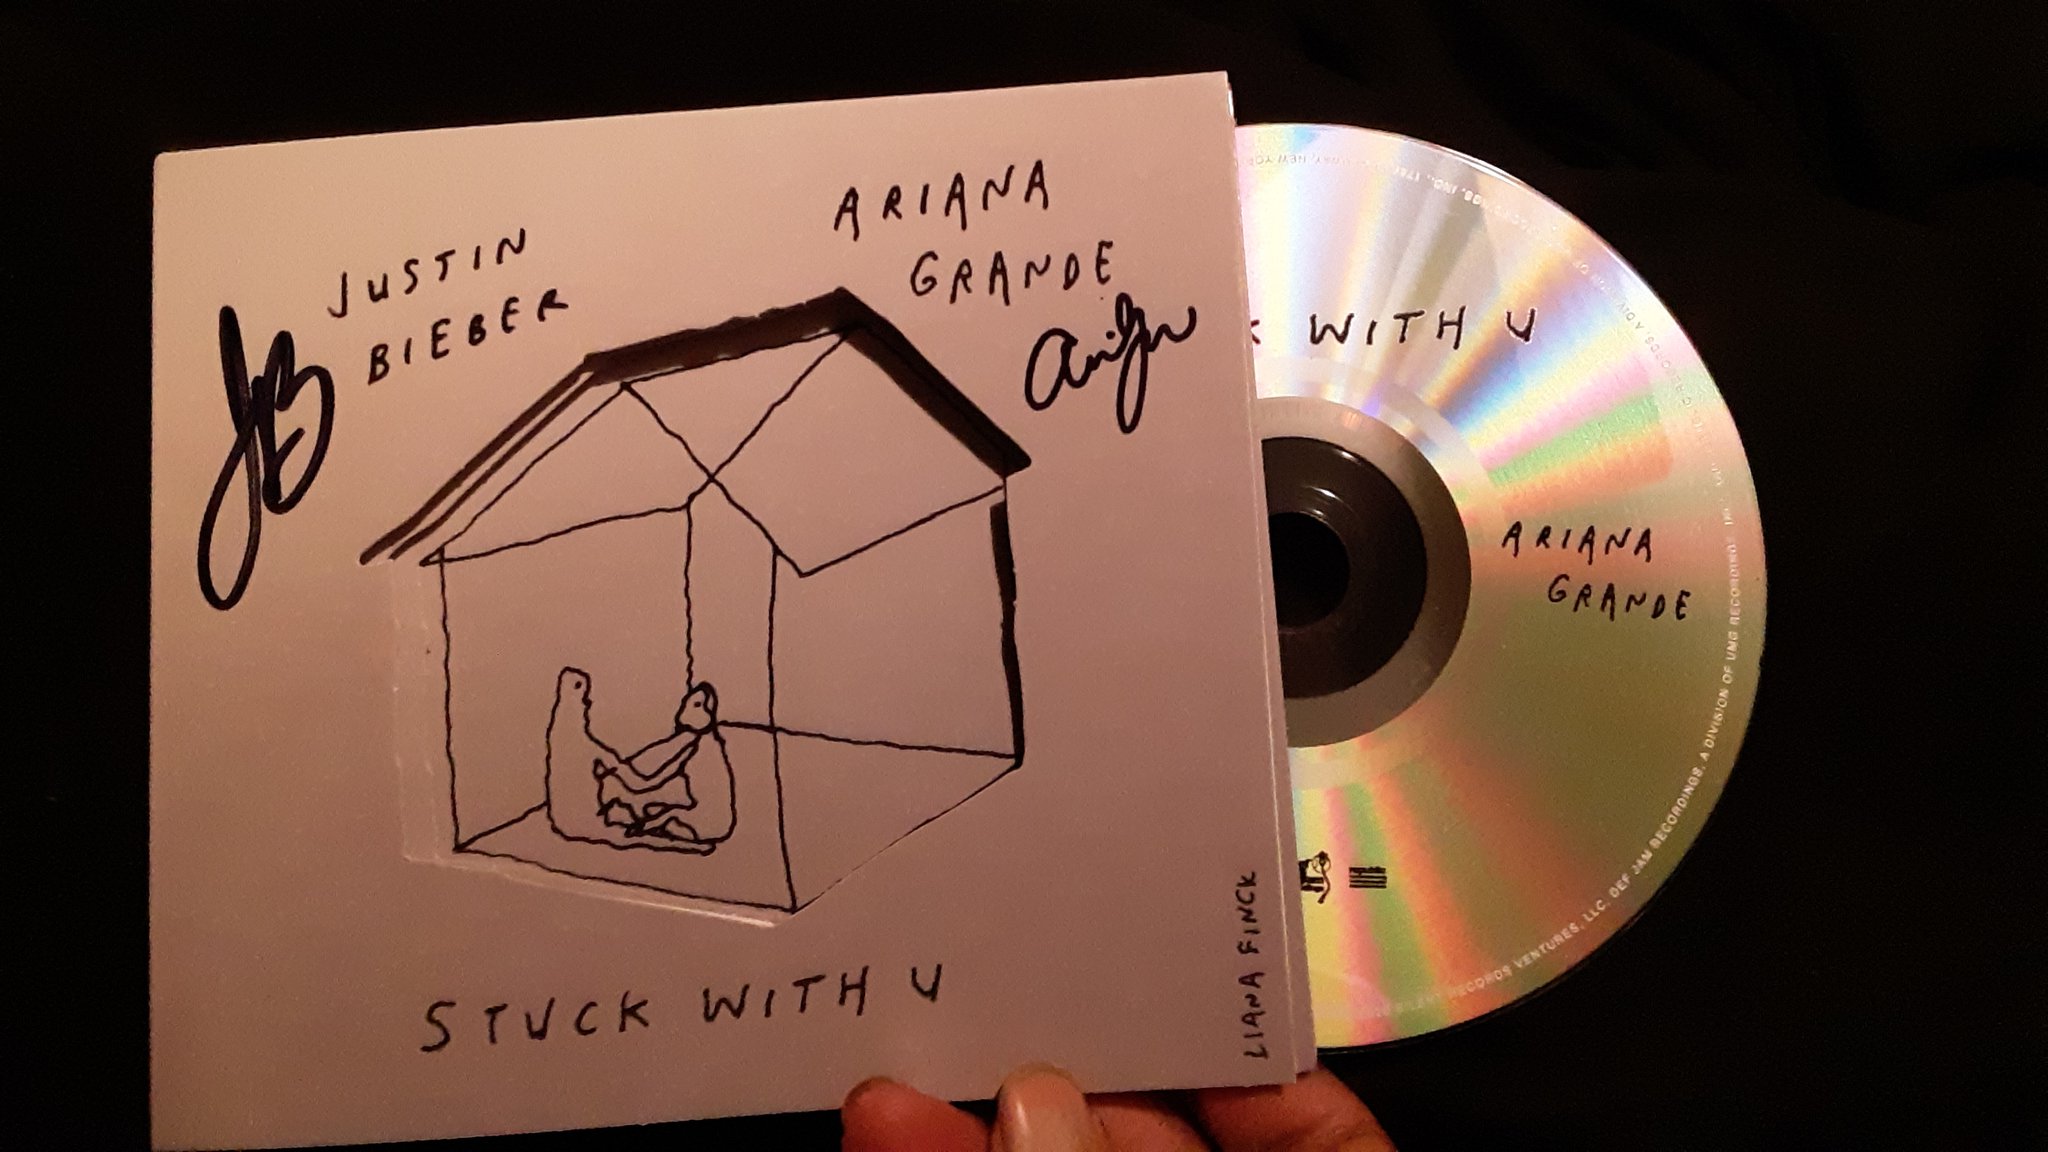 JUSTIN
BIEBER
ARIANA
GRANDE
JB
STUCK WITH U
LIANA FINCK
K WITH U
ARIANA
GRANDE
RECORDS VENTURES, LLC, DEF JAM RECORDINGS, A DIVISION OF UMG RECORDINGS, IN